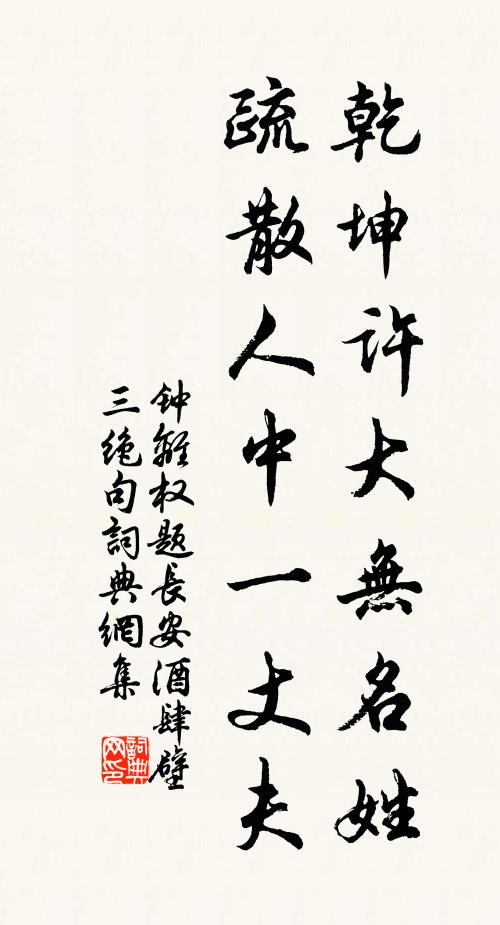 乾坤許大無名姓
疏散人中一丈夫
钟離权題長安酒肆壁
三绝句詞典網集
詞典网印